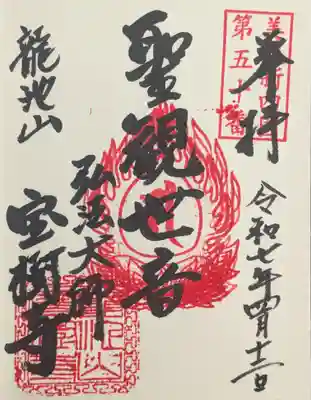 奉拝
第五十番
令和七年四月十三日
聖観世音
弘法大師
龍池山
宝樹寺